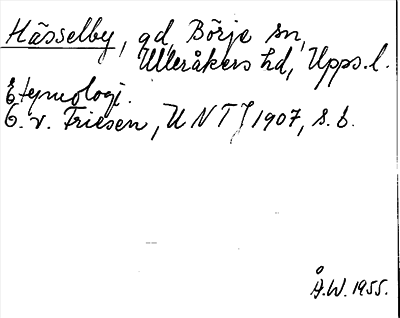 Hässelby, gd, Börje sn,
Ulleråkers hd, Upps.l.
Etymologi.
O. v. Friesen, UNT J 1907, s. 6.
Å.W. 1955.